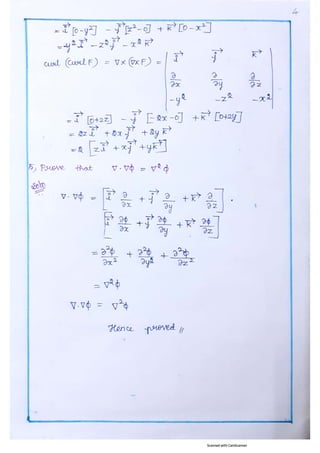 4
= i⃗ [0-y²] - j⃗ [z²-0] + k⃗ [0-x²]
= -y² i⃗ - z² j⃗ - x² k⃗
curl (curl F) = ∇ × (∇×F) = | i⃗ j⃗ k⃗ |
| ∂/∂x ∂/∂y ∂/∂z |
| -y² -z² -x² |
= i⃗ [0+2z] - j⃗ [-2x-0] + k⃗ [0+2y]
= 2z i⃗ + 2x j⃗ + 2y k⃗
= 2 [z i⃗ + x j⃗ + y k⃗]
5, Prove that ∇·∇ϕ = ∇²ϕ
Soln
∇·∇ϕ = [i⃗ ∂/∂x + j⃗ ∂/∂y + k⃗ ∂/∂z] ·
[i⃗ ∂ϕ/∂x + j⃗ ∂ϕ/∂y + k⃗ ∂ϕ/∂z]
= ∂²ϕ/∂x² + ∂²ϕ/∂y² + ∂²ϕ/∂z²
= ∇²ϕ
∇·∇ϕ = ∇²ϕ
Hence proved //
Scanned with CamScanner